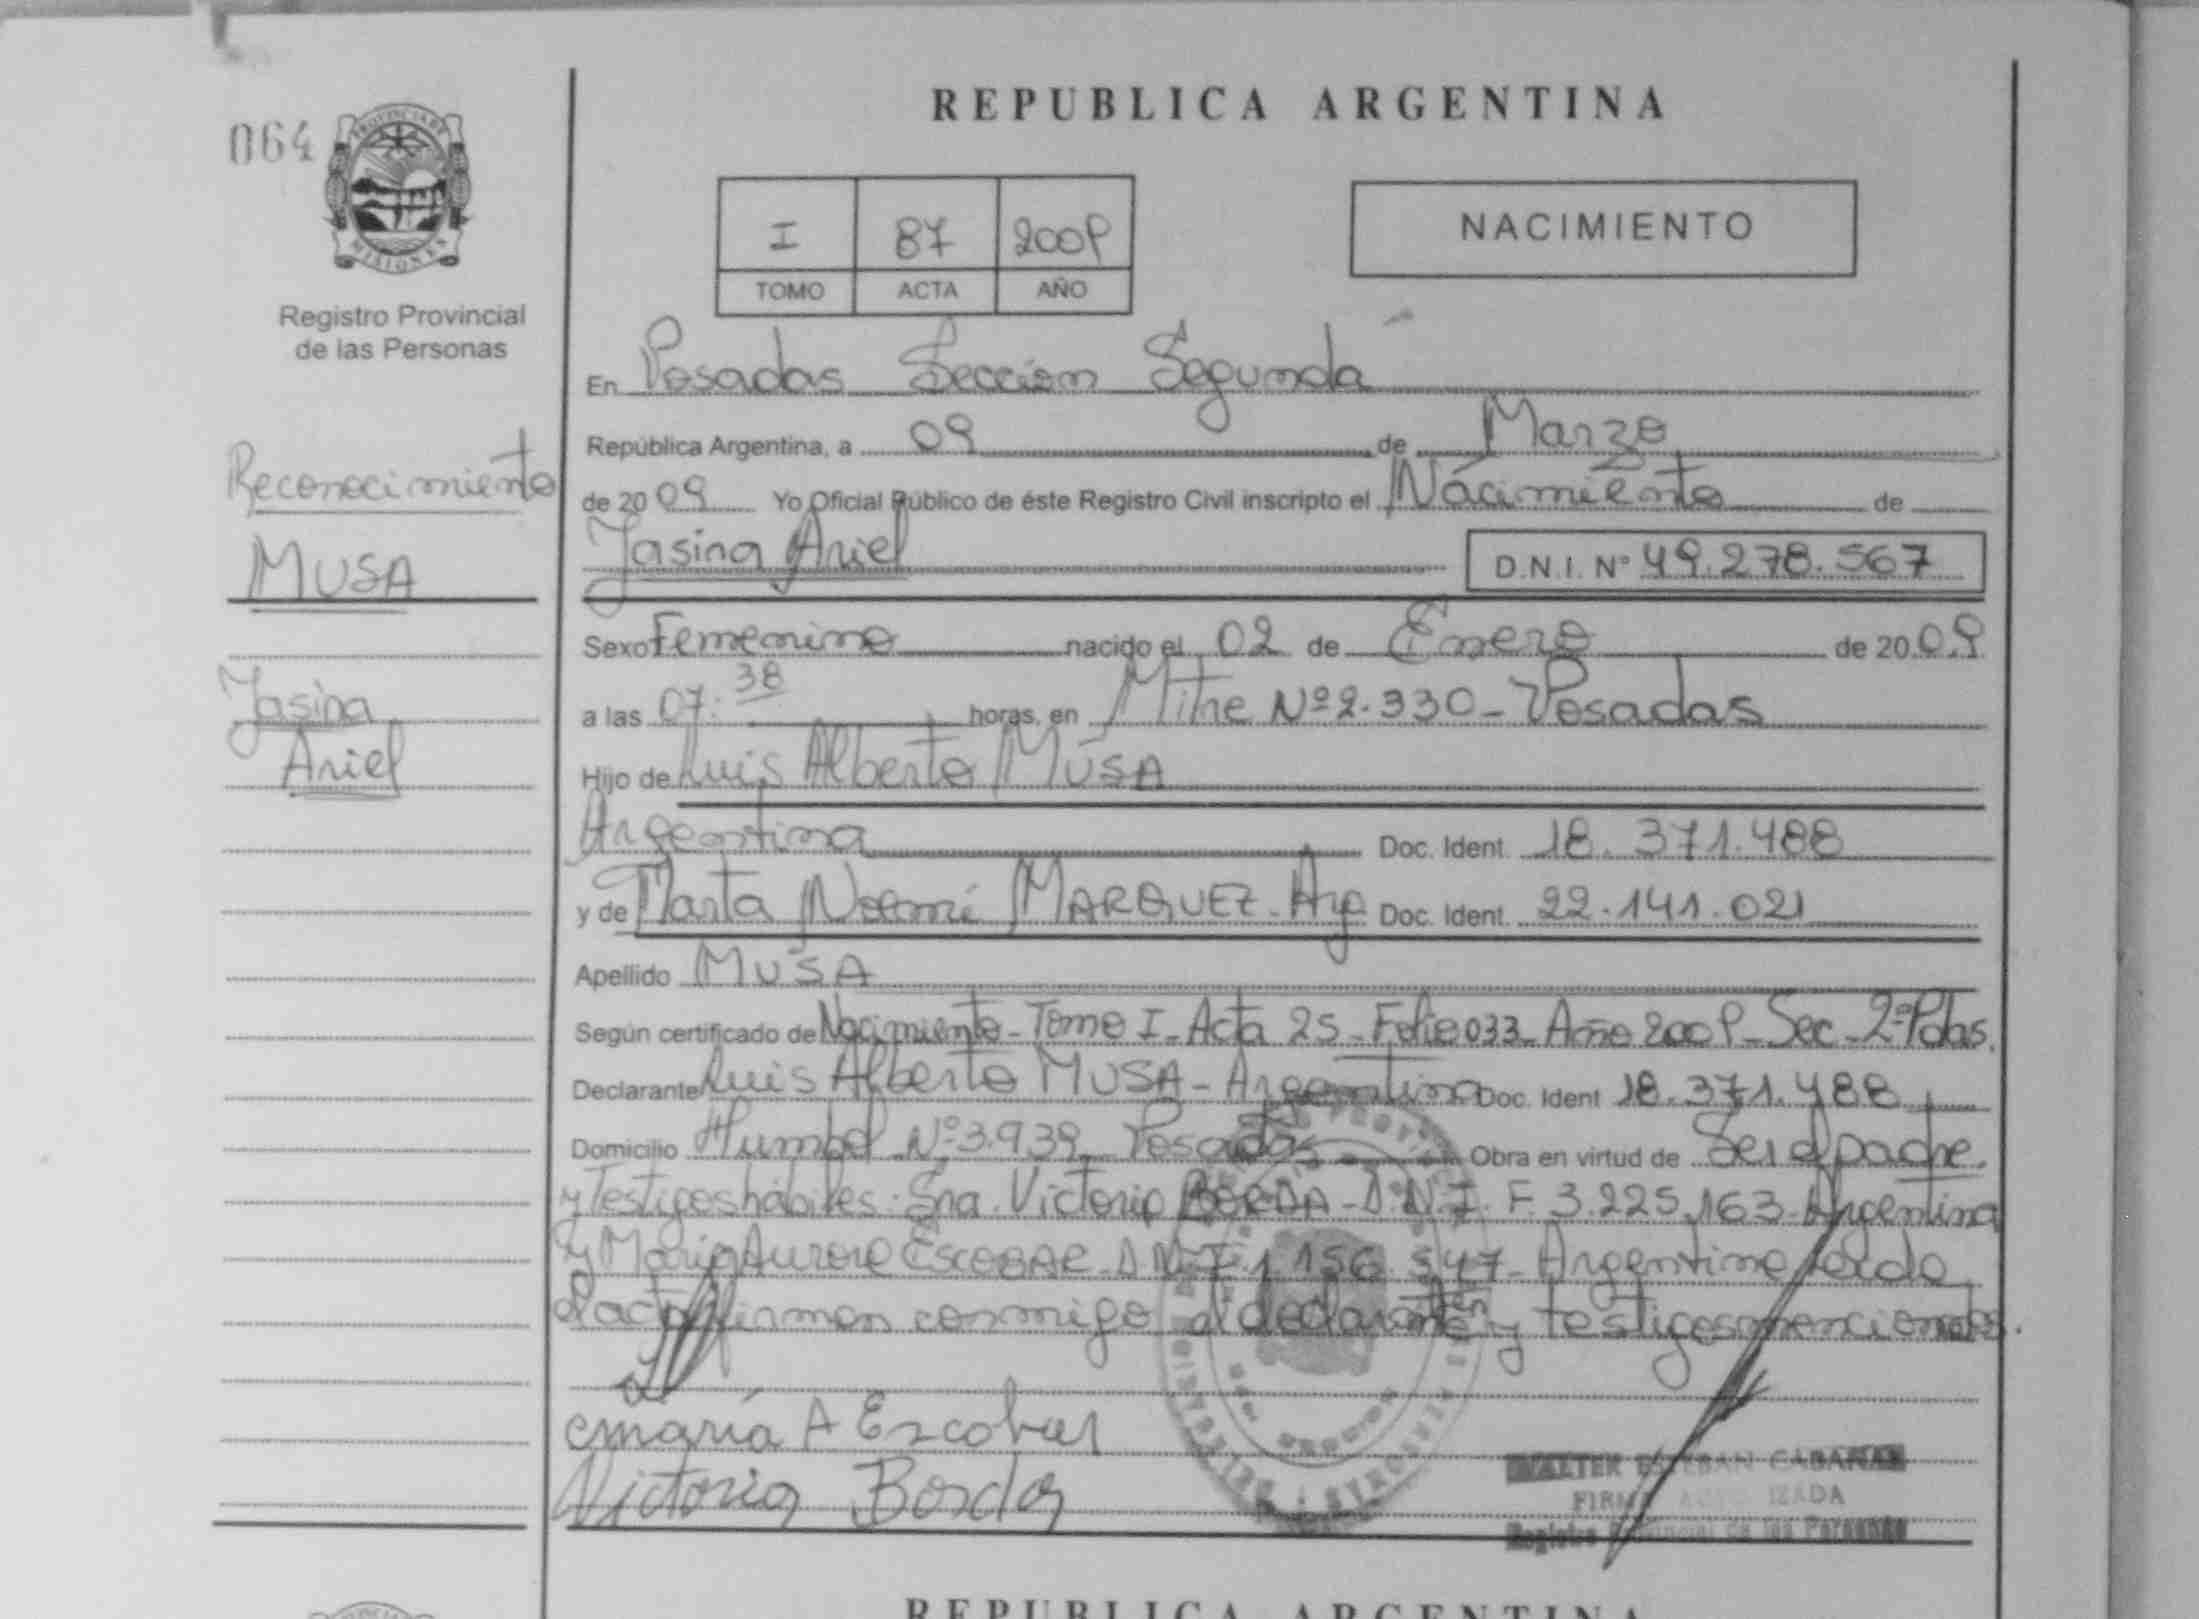 REPUBLICA ARGENTINA
064
PROVINCIA DE
MISIONES
Registro Provincial
de las Personas
I 87 2009
TOMO ACTA AÑO
NACIMIENTO
En Posadas Sección Segunda
República Argentina, a 09 de Marzo
de 2009 Yo Oficial Público de éste Registro Civil inscripto el Nacimiento de
Yasina Ariel D.N.I. Nº 49.278.567
Reconocimiento
MUSA
Yasina
Ariel
Sexo Femenino nacido el 02 de Enero de 2009
a las 07:38 horas, en Mitre Nº 2.330 - Posadas
Hijo de Luis Alberto MUSA
Argentina Doc. Ident. 18.371.488
y de Marta Noemí MARQUEZ - Arg Doc. Ident. 22.141.021
Apellido MUSA
Según certificado de Nacimiento - Tomo I - Acta 25 - Folio 033 - Año 2009 - Sec - 2ª Pdas.
Declarante Luis Alberto MUSA - Argentina Doc. Ident 18.371.488
Domicilio Nº 3.939 Posadas Obra en virtud de Ser el padre
y Testigos hábiles: Sra. Victoria BORDA - D.N.I. F. 3.225.163 - Argentina
y María Aurora ESCOBAR D.N.I. 1.156.547 - Argentina Leido
el acta firman conmigo el declarante y testigos mencionados.
María A Escobar
Victoria Borda
WALTER ESTEBAN CABAÑAS
FIRMA AUTORIZADA
Registro Provincial de las Personas
REPUBLICA ARGENTINA